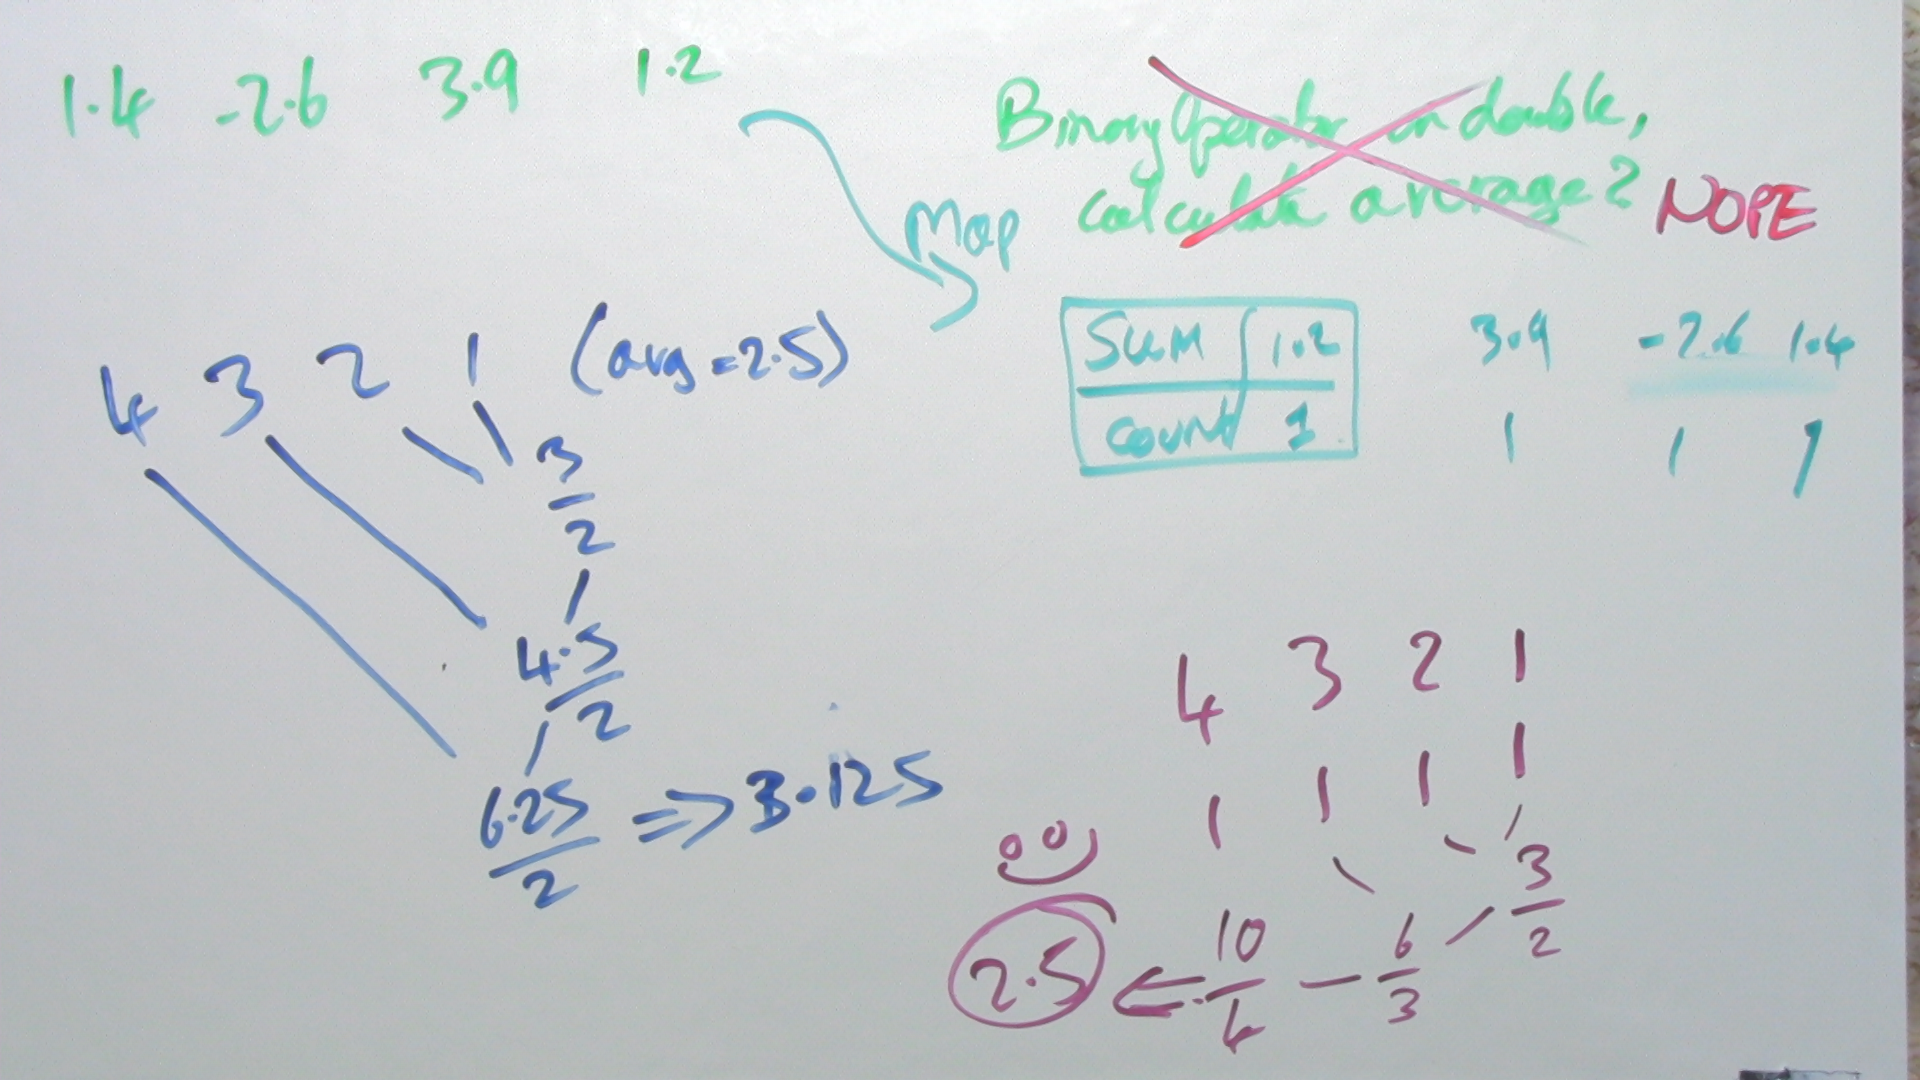 1.4 -2.6 3.9 1.2
BinaryOperator on double,
calculate average?
NOPE
Map
SUM 1.2
count 1
3.9 -2.6 1.4
1 1 1
4 3 2 1 (avg = 2.5)
3
2
4.5
2
6.25
2
=> 3.125
4 3 2 1
1 1 1 1
3
2
6
3
10
4
2.5